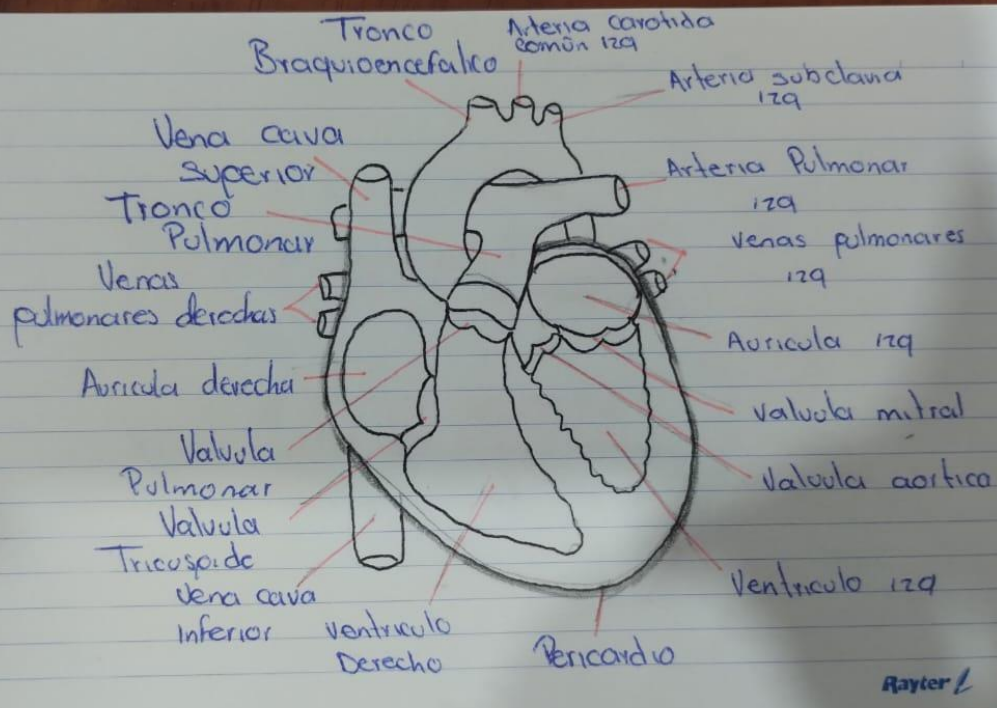 Tronco
Braquioencefalico
Arteria carotida
común izq
Arteria subclavia
izq
Vena cava
superior
Arteria Pulmonar
izq
Tronco
Pulmonar
venas pulmonares
izq
Venas
pulmonares derechas
Auricula izq
Auricula derecha
valvula mitral
Valvula
Pulmonar
Valvula aortica
Valvula
Tricuspide
Ventriculo izq
Vena cava
Inferior
ventriculo
Derecho
Pericardio
Rayter